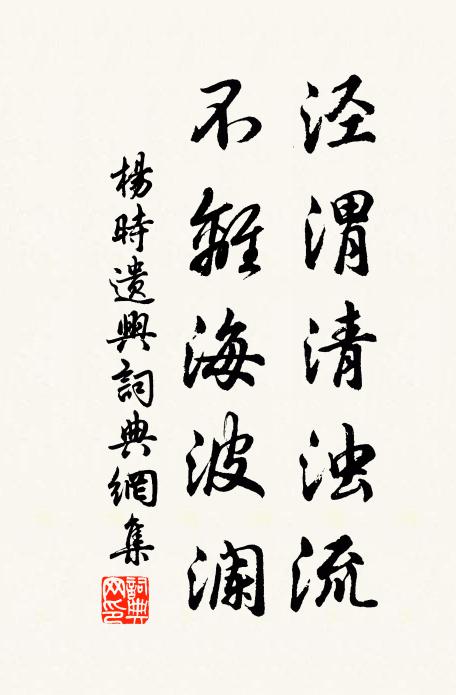 泾渭清浊流
不離海波澜
楊時遣興詞典網集
詞典网印